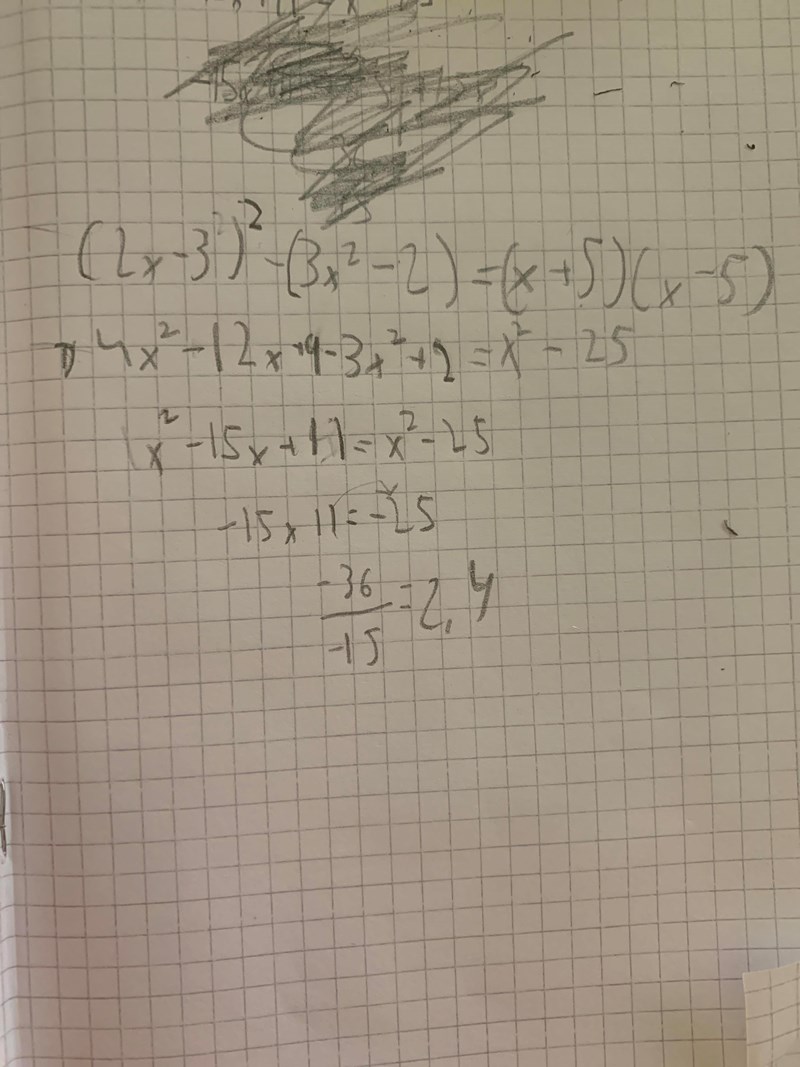 (2x-3)² -(3x²-2)=(x+5)(x-5)
4x²-12x+9-3x²+2=x²-25
x²-15x+11=x²-25
-15x 11=-25
-36/-15=2,4